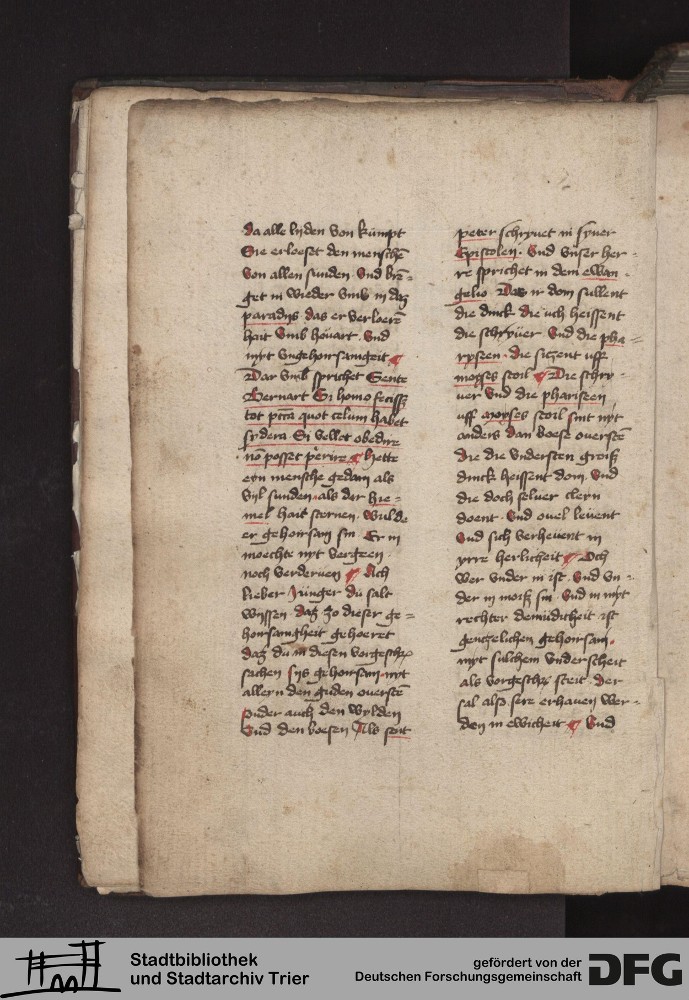 da alle lyden von kumpt
Sie erloeset den menschē
von allen sunden. Vnd brē-
get in wieder vmb in daz
paradijs das er verloerē
hait vmb hoúart. Vnd
nyt vngehorsamgeit. ¶
Dar vmb sprichet Sente
Bernart Si homo fecisset
tot pctā quot celum habet
sydera. Si vellet obedire
nō posset perire. ¶ hette
eyn mensche gedain als
vyl sunden. als der hie-
mel hait sternen. Wulde
er gehorsam sin. Er in
moechte nyt vergeen.
noch verderuen ¶ Ach
lieber Júnger dú salt
wyssen. daz zo dieser ge-
horsamgheit gehoeret
daz du in diesen vorgeschr
sachen sys gehorsam. nyt
alleyn den guden ouerstē
Sunder auch den wylden
Vnd den boesen Als sent
peter schryuet in syner
Epistolen. Vnd vnser her-
re sprichet in dem ewan-
gelio. Daz ir dom sullent
die dinck die uch heissent
die schryúer Vnd die pha-
ryseen. die sitzent uff
moyses stoil. ¶ Die schry-
uer Vnd die phariseen
uff moyses stoil sint nyt
anders dan boese ouerstē
Die die vndersten groiß
dinck heissent dom. Vnd
die doch seluer cleyn
doent. Vnd ouel leuent
Vnd sich verheuent in
yrre herlicheit ¶ Och
wer vnder in ist. Vnd vn-
der in moiß sin. Vnd in myt
rechter demúdicheit ist
gentzelichen gehorsam.
myt sulchem vnderscheit
als vorgeschr steit. der
sal also sere erhauen wer-
den in ewicheit. ¶ Vnd
Stadtbibliothek
und Stadtarchiv Trier
gefördert von der
Deutschen Forschungsgemeinschaft
DFG